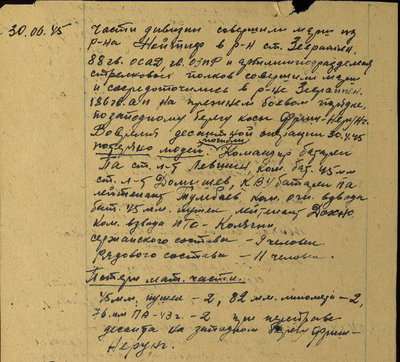 30.04.45 Части дивизии совершили марш из
р-на Нейтиф в р-н ст. Зеераппен.
88 гв. ОСАД, гв. ОЗПР и артминподразделения
стрелковых полков совершили марш
и сосредоточились в р-це Зеераппен.
186 гв. ап на прежнем боевом порядке
по западному берегу косы Фриш-Нерунг.
Во время десантной операции 30.4.45
потеряно людей: Командир батареи
ПА ст. л-т Левшин, ком. бат. 45 мм
ст. л-т Домышев, КВУ батареи ПА
лейтенант Тумбаев, ком. огн. взвода
бат. 45 мм. пушек лейтенант
ком. взвода ПТО -
сержантского состава - 9 человек
рядового состава - 11 человек.
Потери мат. части.
45 мм. пушек - 2, 82 мм. миномета - 2,
76 мм ПА-43 г. - 2 при переправе
десанта на западном берегу Фриш-
Нерунг.